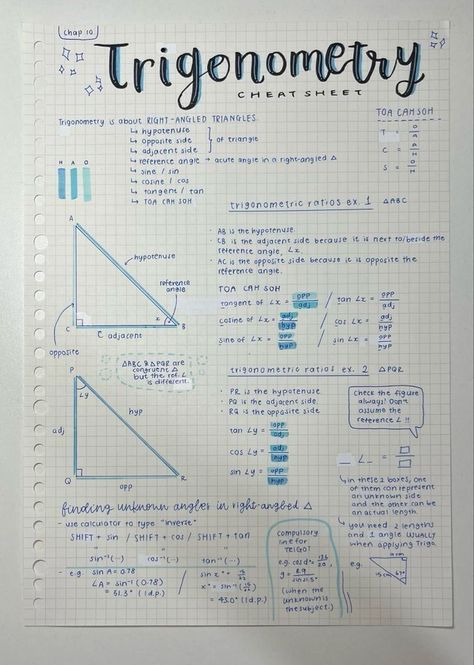 Chap 10
Trigonometry
CHEAT SHEET
Trigonometry is about RIGHT-ANGLED TRIANGLES
↳ hypotenuse
↳ opposite side } of triangle
↳ adjacent side
↳ reference angle → acute angle in a right-angled △
↳ sine / sin
↳ cosine / cos
↳ tangent / tan
↳ TOA CAH SOH
H A O
TOA CAH SOH
T = O/A
C = A/H
S = O/H
trigonometric ratios ex. 1 △ABC
• AB is the hypotenuse.
• CB is the adjacent side because it is next to/beside the
reference angle, ∠x.
• AC is the opposite side because it is opposite the
reference angle.
TOA CAH SOH
tangent of ∠x = opp/adj / tan ∠x = opp/adj
cosine of ∠x = adj/hyp / cos ∠x = adj/hyp
sine of ∠x = opp/hyp / sin ∠x = opp/hyp
A
hypotenuse
reference
angle
x
C
B
C adjacent
opposite
△ABC & △PQR are
congruent △
but the ref. ∠
is different.
trigonometric ratios ex. 2 △PQR
• PR is the hypotenuse
• PQ is the adjacent side.
• RQ is the opposite side
tan ∠y = opp/adj
cos ∠y = adj/hyp
sin ∠y = opp/hyp
P
∠y
hyp
adj
Q
R
opp
Check the figure
always! Don't
assume the
reference ∠ !!
_ ∠_ = □/□
↳ in these 2 boxes, one
of them can represent
an unknown side
and the other can be
an actual length.
↳ you need 2 lengths
and 1 angle USUALLY
when applying Trigo.
e.g.
finding unknown angles in right-angled △
- use calculator to type "inverse"
SHIFT + sin / SHIFT + cos / SHIFT + tan
" " "
sin⁻¹(...) cos⁻¹(...) tan⁻¹(...)
- e.g. sin A = 0.78
∠A = sin⁻¹(0.78)
= 51.3° (1d.p.)
= 43.0° (1d.p.)
compulsory
line for
TRIGO!
(when the
unknown is
the subject.)